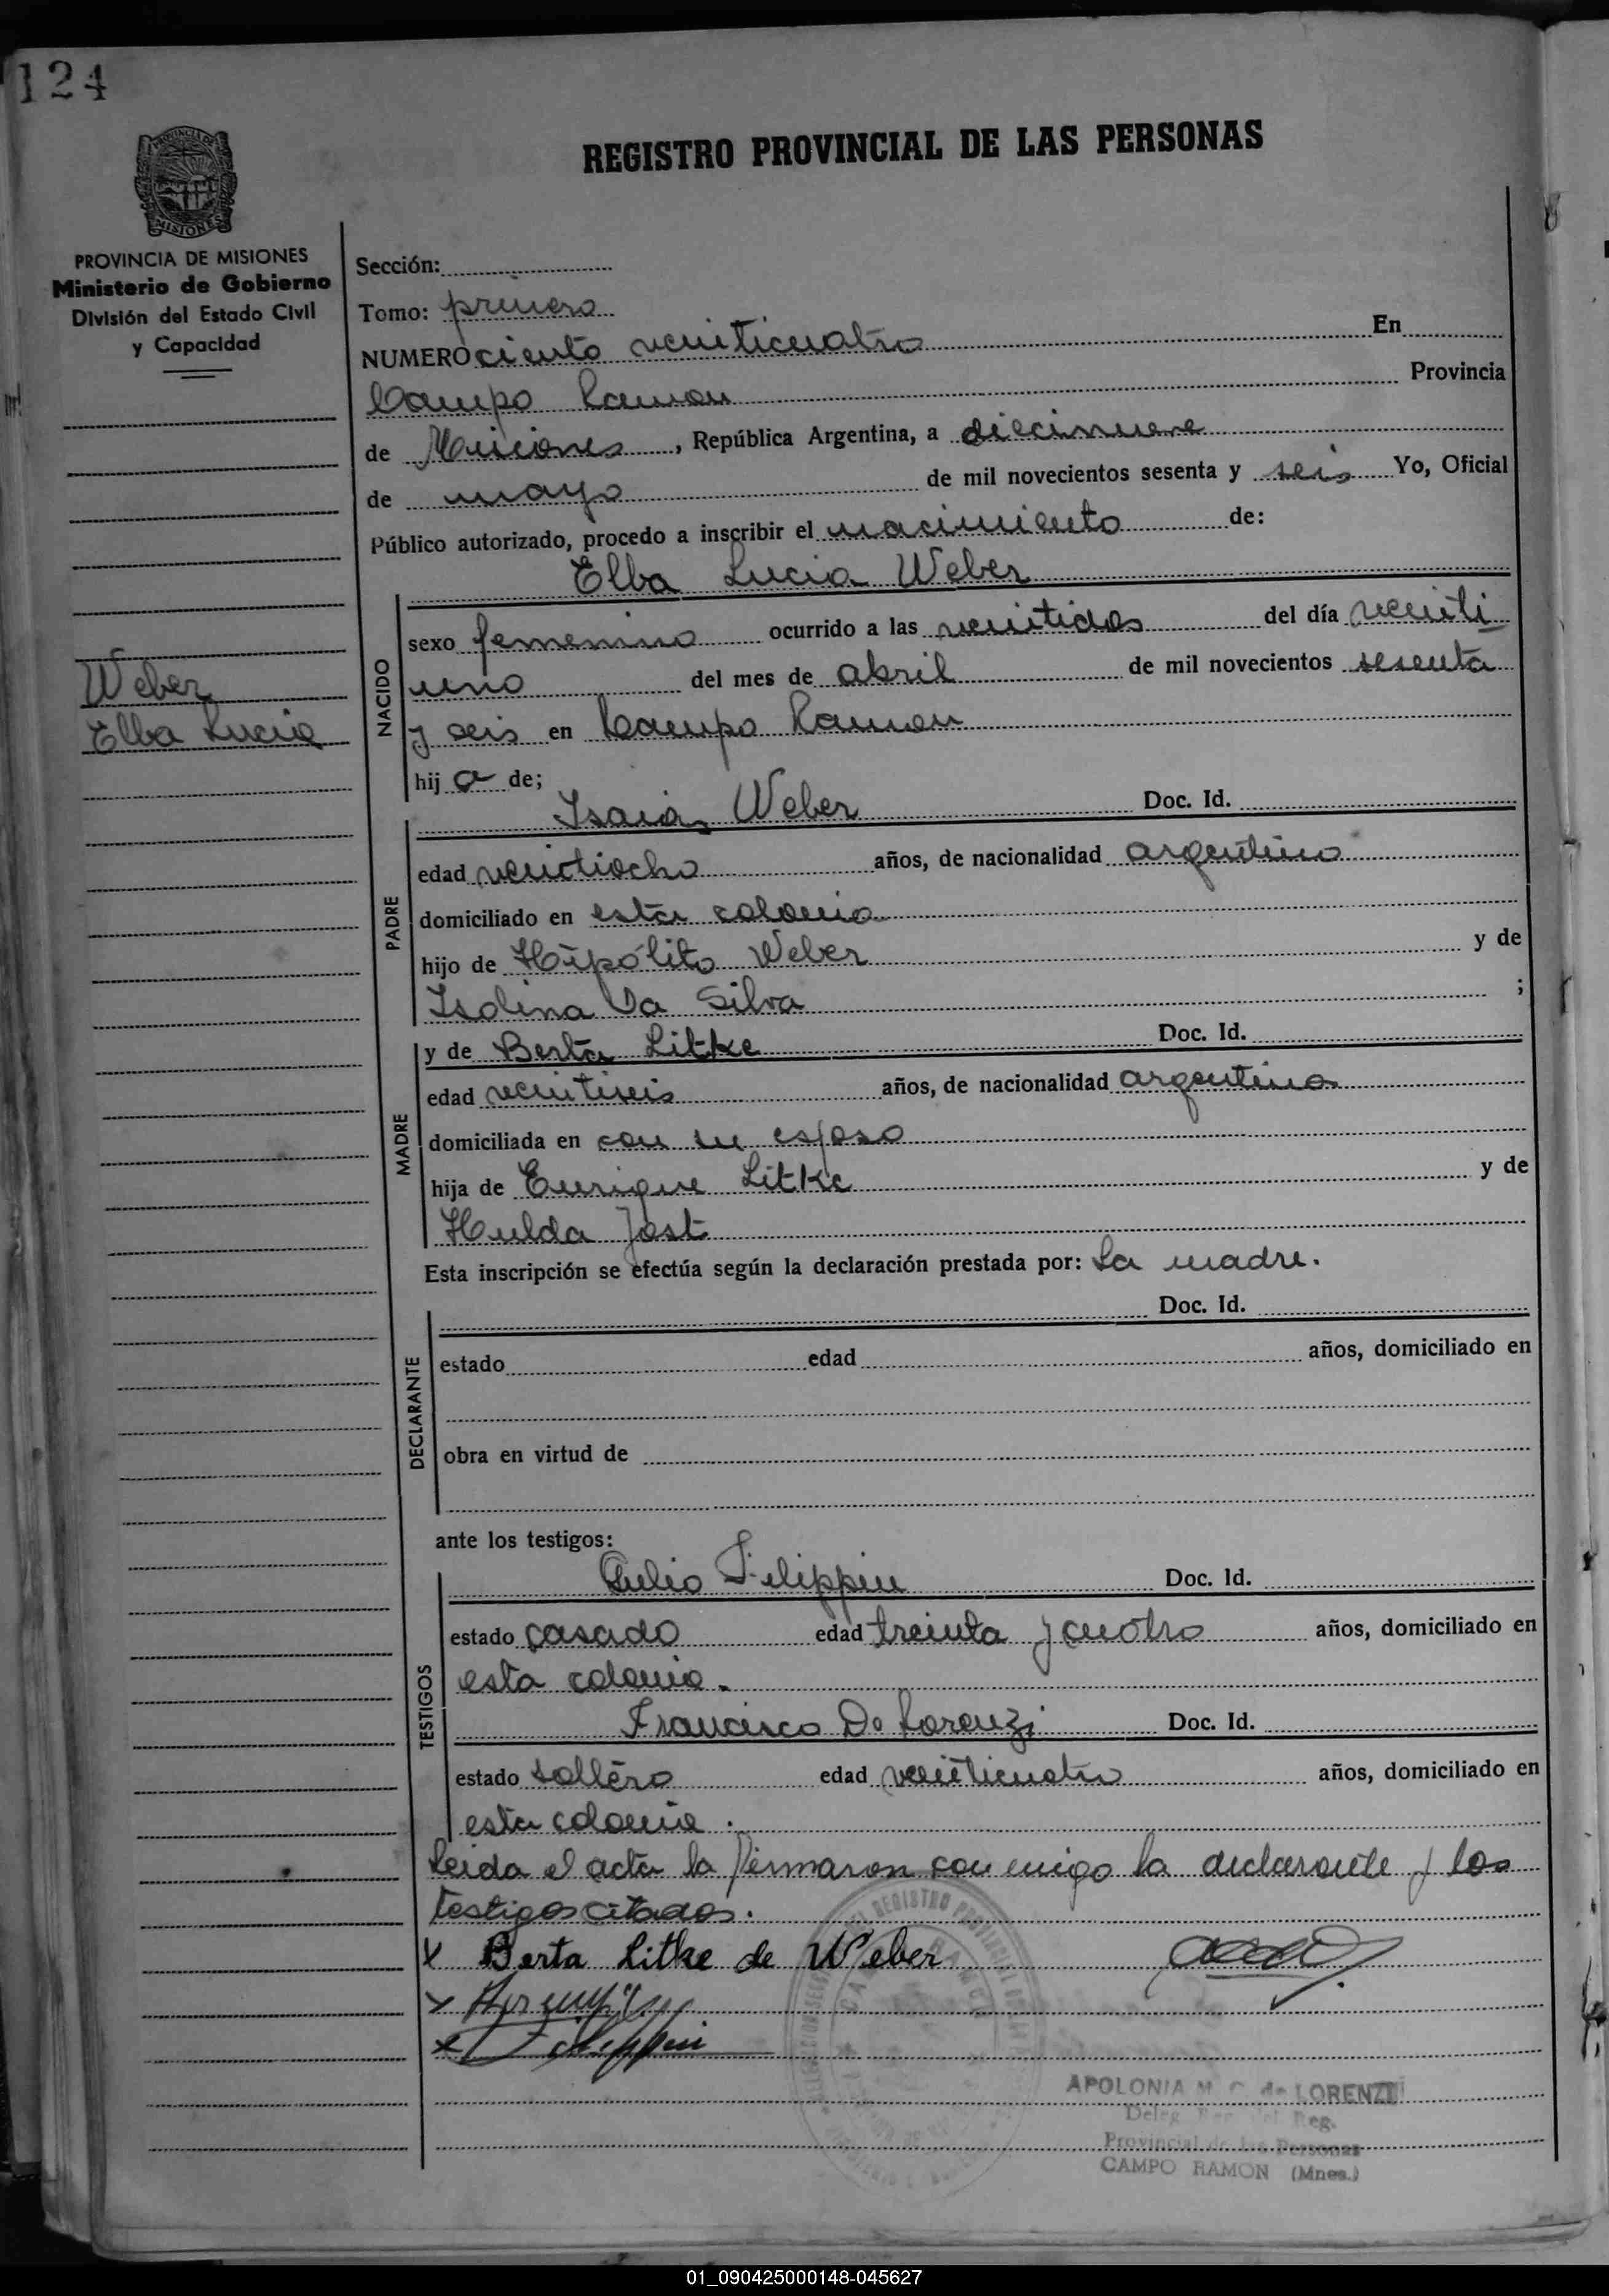 124
REGISTRO PROVINCIAL DE LAS PERSONAS
PROVINCIA DE MISIONES
MISIONES
PROVINCIA DE MISIONES
Ministerio de Gobierno
División del Estado Civil
y Capacidad
Weber
Elba Lucia
Sección:
Tomo: primero
NUMERO ciento veinticuatro En
Campo Ramon Provincia
de Misiones, República Argentina, a diecinueve
de mayo de mil novecientos sesenta y seis Yo, Oficial
Público autorizado, procedo a inscribir el nacimiento de:
Elba Lucia Weber
NACIDO
sexo femenino ocurrido a las veintidos del día veinti
uno del mes de abril de mil novecientos sesenta
y seis en Campo Ramon
hij a de;
PADRE
Isaias Weber Doc. Id.
edad veintiocho años, de nacionalidad argentino
domiciliado en esta colonia
hijo de Hipólito Weber y de
Isolina Da Silva ;
MADRE
y de Berta Litke Doc. Id.
edad veintiseis años, de nacionalidad argentina
domiciliada en con su esposo
hija de Enrique Litke y de
Hulda Jost
Esta inscripción se efectúa según la declaración prestada por: La madre.
DECLARANTE
Doc. Id.
estado edad años, domiciliado en
obra en virtud de
ante los testigos:
TESTIGOS
Julio Filippin Doc. Id.
estado casado edad treinta y cuatro años, domiciliado en
esta colonia.
Francisco De Lorenzi Doc. Id.
estado soltero edad veinticuatro años, domiciliado en
esta colonia.
Leida el acta la firmaron conmigo la declarante y los
testigos citados.
x Berta Litke de Weber
x
x
APOLONIA M. C. de LORENZI
Deleg. Reg.
Provincial de las Personas
CAMPO RAMON (Mnes.)
01_090425000148-045627